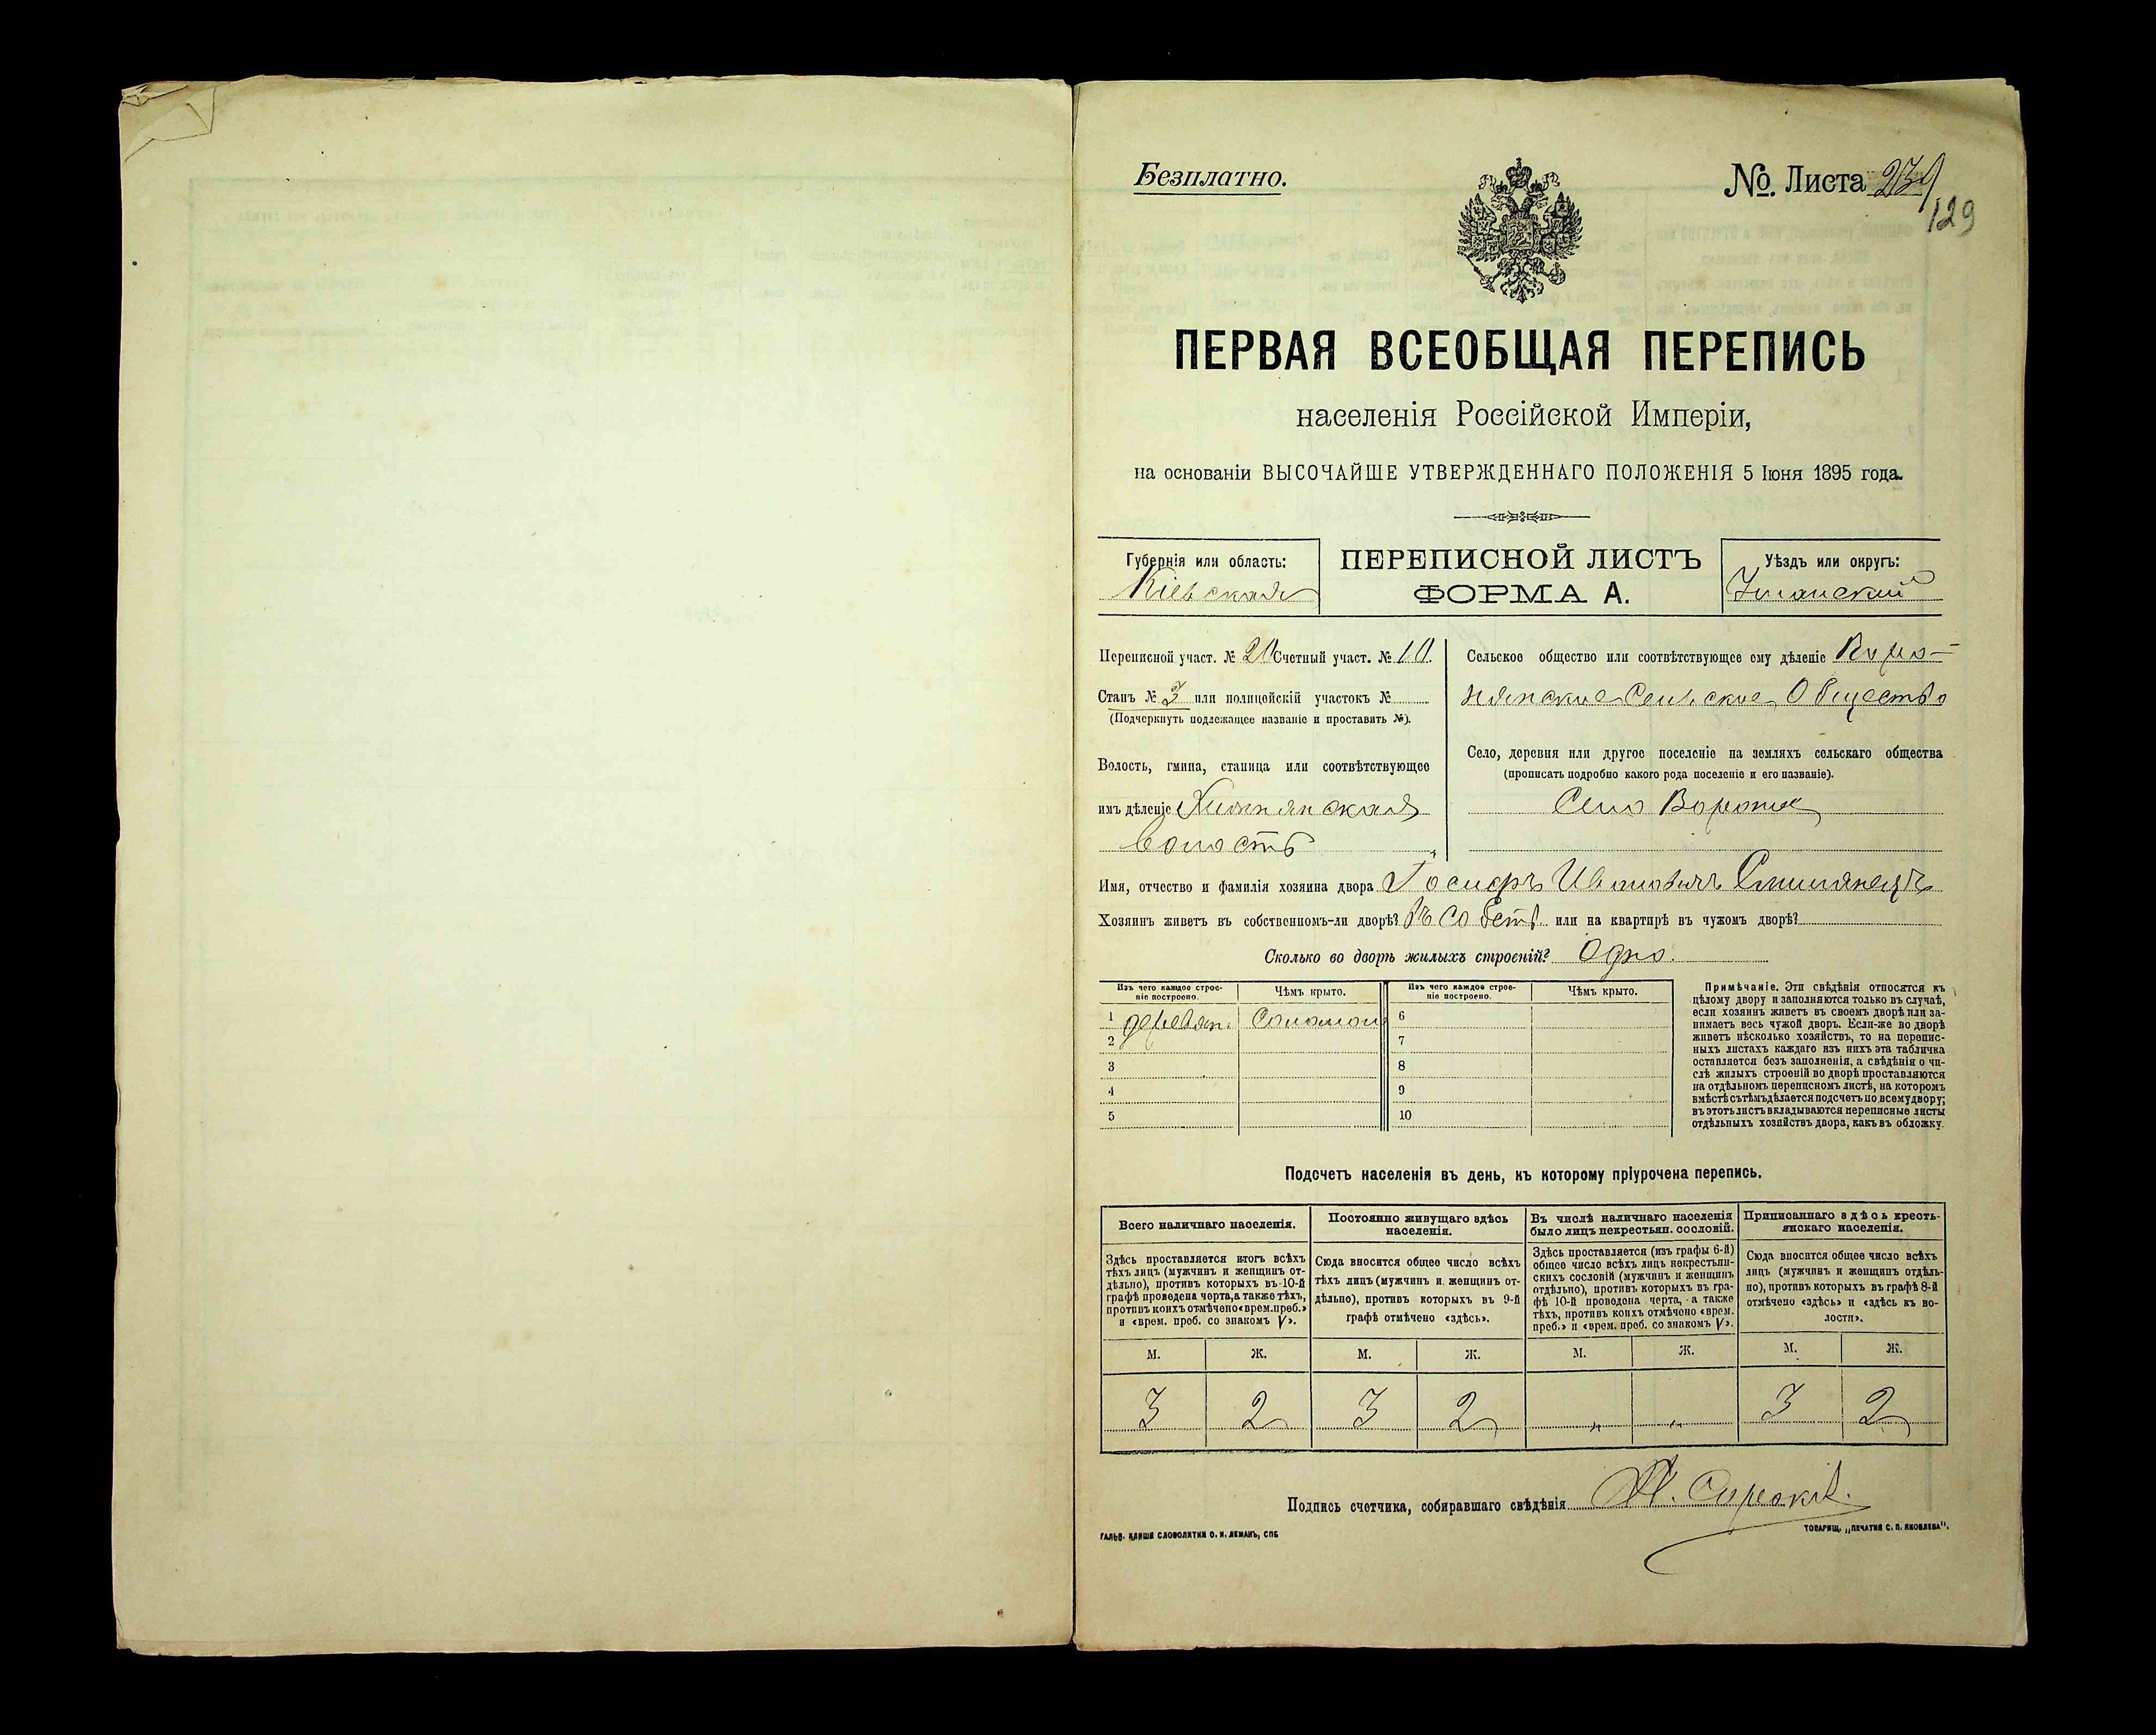 Безплатно.
№. Листа 239
129
ПЕРВАЯ ВСЕОБЩАЯ ПЕРЕПИСЬ
населенія Россійской Имперіи,
на основаніи ВЫСОЧАЙШЕ УТВЕРЖДЕННАГО ПОЛОЖЕНІЯ 5 Іюня 1895 года.
Губернія или область:
Кіевская
ПЕРЕПИСНОЙ ЛИСТЪ
ФОРМА А.
Уѣздъ или округъ:
Уманский
Переписной участ. № 20 Счетный участ. № 10.
Станъ № 3 или полицейскій участокъ №
(Подчеркнуть подлежащее названіе и проставить №).
Волость, гмина, станица или соотвѣтствующее
имъ дѣленіе
волость
Сельское общество или соотвѣтствующее ему дѣленіе Воро-
нянское Сельское Общество
Село, деревня или другое поселеніе на земляхъ сельскаго общества
(прописать подробно какого рода поселеніе и его названіе).
Село Вороное
Имя, отчество и фамилія хозяина двора Іосифъ Ивановичъ
Хозяинъ живетъ въ собственномъ-ли дворѣ? Въ собств. или на квартирѣ въ чужомъ дворѣ?
Сколько во дворѣ жилыхъ строеній? Одно.
Изъ чего каждое строе-
ніе построено.
Чѣмъ крыто.
Изъ чего каждое строе-
ніе построено.
Чѣмъ крыто.
1 деревян. Соломой 6
2 7
3 8
4 9
5 10
Примѣчаніе. Эти свѣдѣнія относятся къ
цѣлому двору и заполняются только въ случаѣ,
если хозяинъ живетъ въ своемъ дворѣ или за-
нимаетъ весь чужой дворъ. Если-же во дворѣ
живетъ нѣсколько хозяйствъ, то на перепис-
ныхъ листахъ каждаго изъ нихъ эта табличка
оставляется безъ заполненія, а свѣдѣнія о чи-
слѣ жилыхъ строеній во дворѣ проставляются
на отдѣльномъ переписномъ листѣ, на которомъ
вмѣстѣ съ тѣмъ дѣлается подсчетъ по всему двору;
въ этотъ листъ вкладываются переписные листы
отдѣльныхъ хозяйствъ двора, какъ въ обложку.
Подсчетъ населенія въ день, къ которому пріурочена перепись.
Всего наличнаго населенія.
Здѣсь проставляется итогъ всѣхъ
тѣхъ лицъ (мужчинъ и женщинъ от-
дѣльно), противъ которыхъ въ 10-й
графѣ проведена черта, а также тѣхъ,
противъ коихъ отмѣчено «врем. преб.»
и «врем. преб. со знакомъ V».
Постоянно живущаго здѣсь
населенія.
Сюда вносится общее число всѣхъ
тѣхъ лицъ (мужчинъ и женщинъ от-
дѣльно), противъ которыхъ въ 9-й
графѣ отмѣчено «здѣсь».
Въ числѣ наличнаго населенія
было лицъ некрестьян. сословій.
Здѣсь проставляется (изъ графы 6-й)
общее число всѣхъ лицъ некрестьян-
скихъ сословій (мужчинъ и женщинъ
отдѣльно), противъ которыхъ въ гра-
фѣ 10-й проведена черта, а также
тѣхъ, противъ коихъ отмѣчено «врем.
преб.» и «врем. преб. со знакомъ V».
Приписаннаго здѣсь кресть-
янскаго населенія.
Сюда вносится общее число всѣхъ
лицъ (мужчинъ и женщинъ отдѣль-
но), противъ которыхъ въ графѣ 8-й
отмѣчено «здѣсь» и «здѣсь къ во-
лости».
М. Ж. М. Ж. М. Ж. М. Ж.
3 2 3 2 " " 3 2
Подпись счетчика, собиравшаго свѣдѣнія
ГАЛЬВ. КЛИШЕ СЛОВОЛИТНИ О. И. ЛЕМАНЪ, СПБ
ТОВАРИЩ. „ПЕЧАТНЯ С. П. ЯКОВЛЕВА".